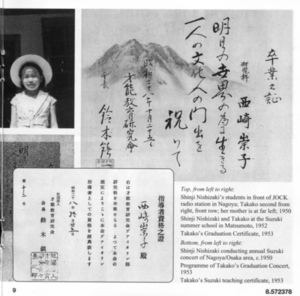 卒業之証
研究科
西崎崇子
明日の世界の為に生きる
一人の文化人の門出を
祝いて
昭和二十八年十月二十五日
才能教育研究会
鈴木鎮一
指導者資格之證
西崎崇子 殿
Top, from left to right:
Shinji Nishizaki's students in front of JOCK
radio station in Nagoya; Takako second from
right, front row; her mother is at far left; 1950
Shinji Nishizaki and Takako at the Suzuki
summer school in Matsumoto, 1952
Takako's Graduation Certificate, 1953
Bottom, from left to right:
Shinji Nishizaki conducting annual Suzuki
concert of Nagoya/Osaka area, c.1950
Programme of Takako's Graduation Concert,
1953
Takako's Suzuki teaching certificate, 1953
9
8.572378